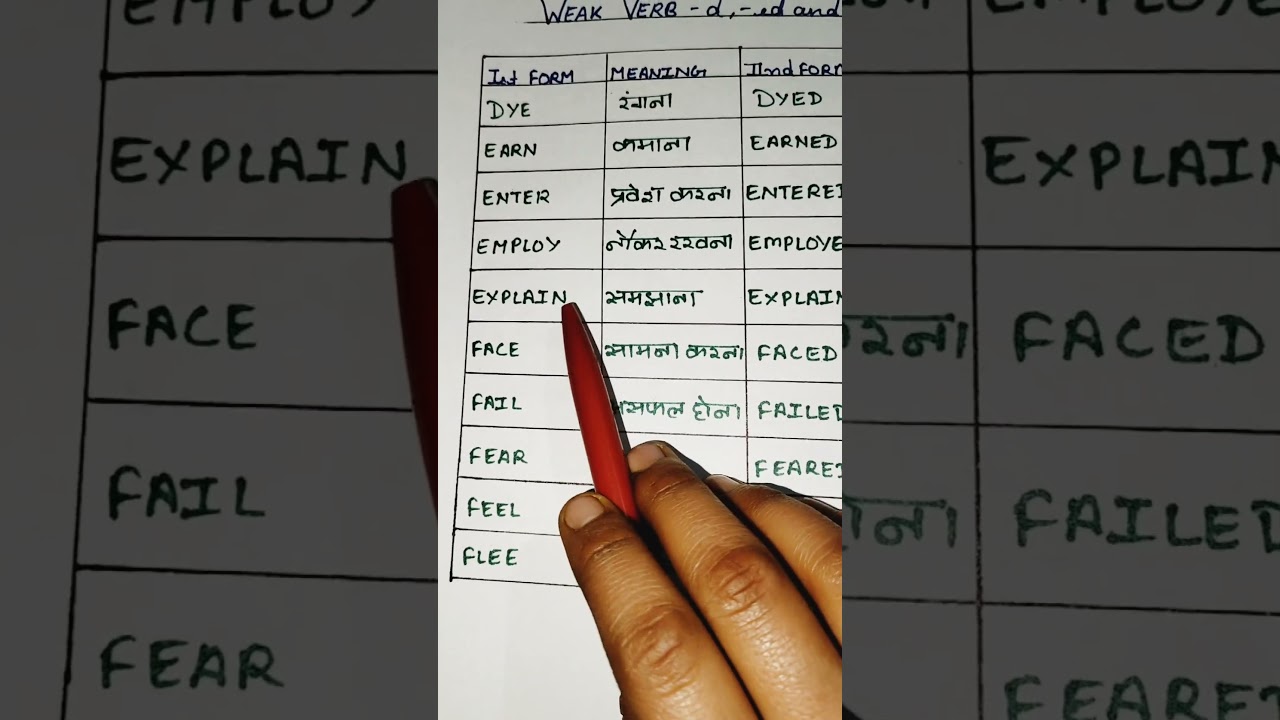 WEAK VERB -d, -ed and
Ist FORM MEANING IInd FORM
DYE रंगाना DYED
EARN कमाना EARNED
ENTER प्रवेश करना ENTERE
EMPLOY नौकर रखना EMPLOYE
EXPLAIN समझाना EXPLAIN
FACE सामना करना FACED
FAIL सफल होना FAILED
FEAR FEARE
FEEL
FLEE